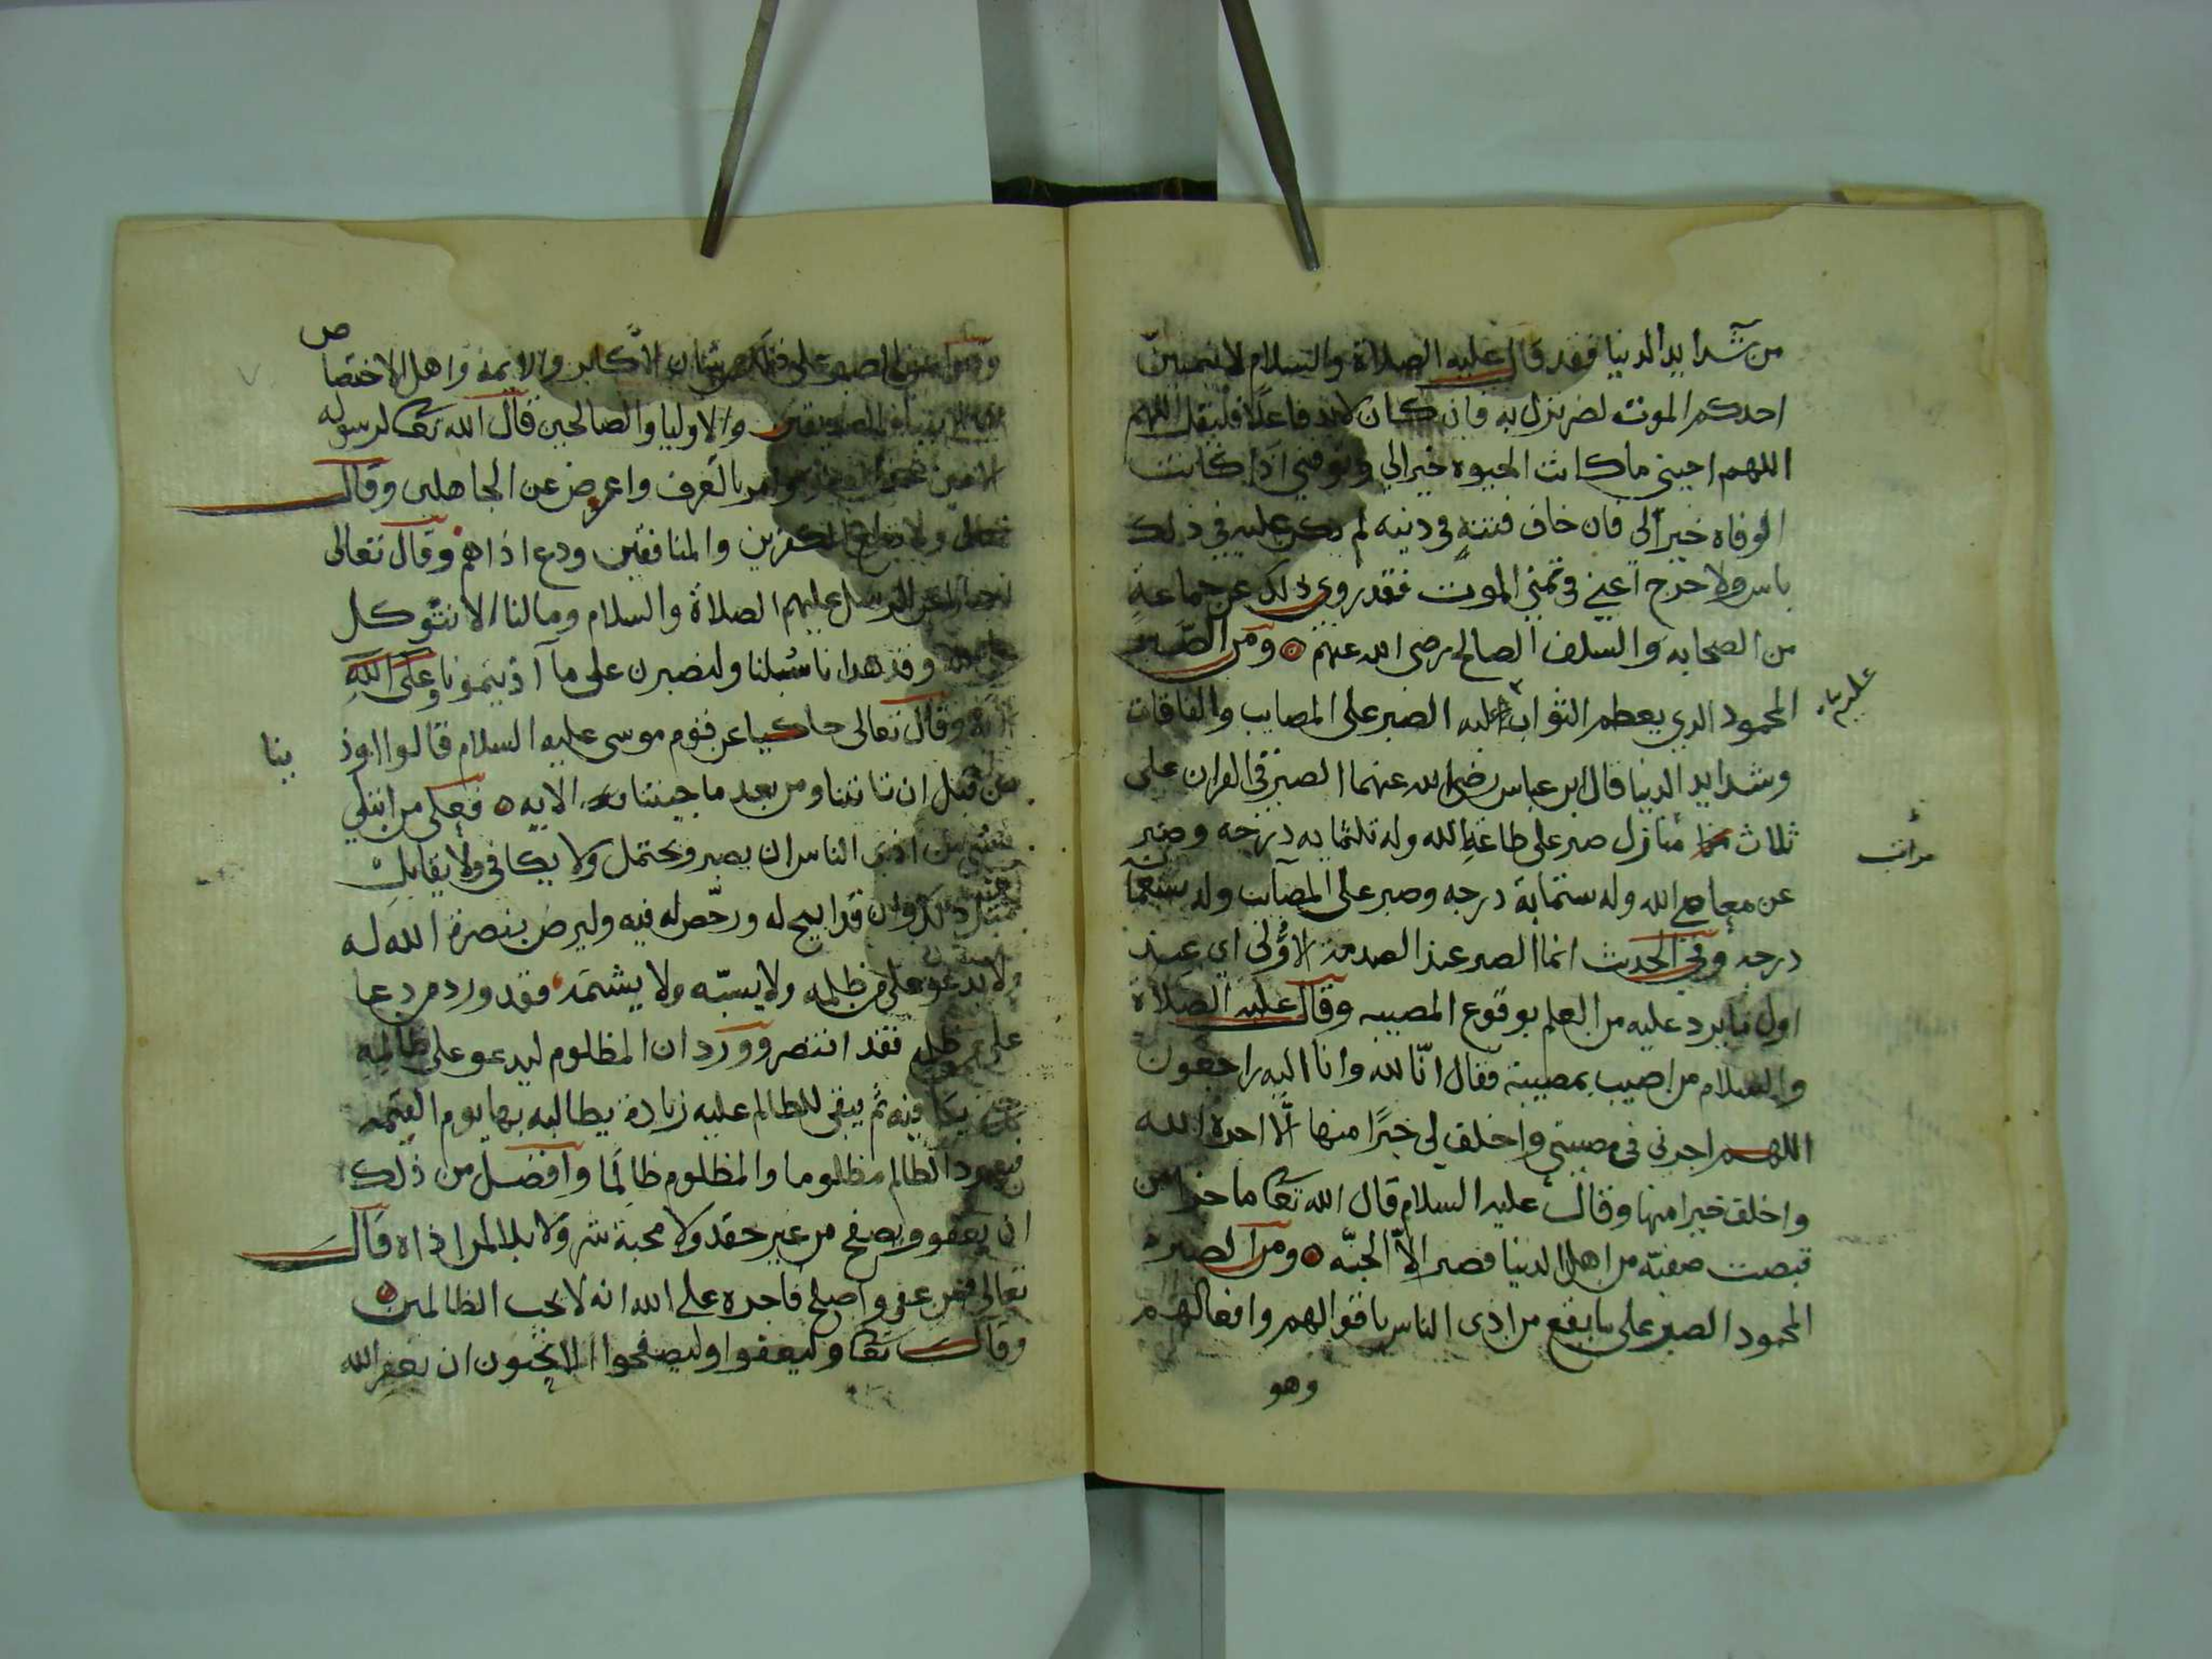 من شدايد الدنيا فقد قال عليه الصلاة والسلام لا يتمنين
احدكم الموت لضر نزل به فان كان لابد فاعلا فليقل اللهم
اللهم احيني ما كانت الحيوه خيرا لي وتوفني اذا كانت
الوفاه خيرا لي فان خاف فتنة في دينه لم يكن عليه في ذلك
باس ولا حرج اعني في تمني الموت فقد روي ذلك عن جماعة
من الصحابه والسلف الصالح رضي الله عنهم ومن الصبر
المحمود الدي يعظم الثواب عليه الصبر على المصايب والفاقات
وشدايد الدنيا قال ابن عباس رضي الله عنهما الصبر في القران على
ثلاث منازل صبر على طاعة الله وله ثلثمايه درجه وصبر
مراتب
عن معاصي الله وله ستماية درجه وصبر على المصآيب وله تسعمآ
درجه وفي الحديث انما الصبر عند الصدمه الاولى اي عند
اول ما يرد عليه من العلم بوقوع المصيبه وقال عليه الصلاة
والسلام من اصيب بمصيبة فقال انّا لله وانا اليه راجعون
اللهم اجرني في مصيبتي واخلف لي خيرًا منها الّا اجره الله
واخلف خيرا منها وقال عليه السلام قال الله تعا ما جزا من
قبضت صفيّه من اهل الدنيا فصبر الاّ الجنّه ومن الصبر
المحمود الصبر على ما يقع من اذى الناس باقوالهم وافعالهم
وهو
الاكابر والايمة واهل الاختصا
ص
والاوليا والصالحين قال الله تعا لرسوله
وامر بالعرف واعرض عن الجاهلين وقال
تعالى ولا تطع الكفرين والمنافقين ودع اذاهم وقال تعالى
عن الرسل عليهم الصلاة والسلام وما لنا الا نتوكل
وقد هدانا سبلنا ولنصبرن على مآ آذيتمونا وعلى الله
وقال تعالى حاكيا عن قوم موسى عليه السلام قالوا اوذ
ينا
من قبل ان تاتينا ومن بعد ما جيتنا الايه فعلى من ابتلي
بشي من اذى الناس ان يصبر ويحتمل ولا يكافي ولا يقابل
ذلك وان قد ابيح له ورخّص له فيه وليرض بنصرة الله له
ولا يدعو على من ظلمه ولا يسبّه ولا يشتمه فقد ورد من دعا
على من ظلمه فقد انتصر وورد ان المظلوم ليدعو على ظالمه
حتى يكافيه ثم يبقى للظالم عليه زيادة يطالبه بها يوم القيمه
فيعود الظالم مظلوما والمظلوم ظالمًا وافضل من ذلك
ان يعفو ويصفح من غير حقد ولا محبة شر ولا بلا لمن اذاه قال
تعالى فمن عفى واصلح فاجره على الله انه لا يحب الظالمين
وقال تعا وليعفوا وليصفحوا الا تحبون ان يغفر الله